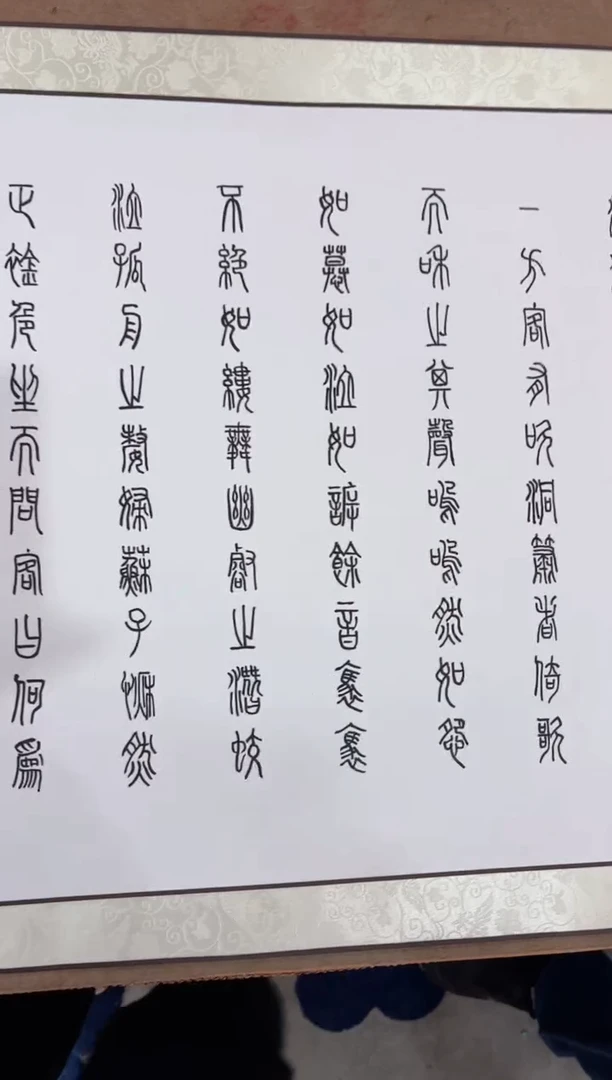 一方客有吹洞簫者倚歌
而和之其聲嗚嗚然如怨
如慕如泣如訴餘音裊裊
不絕如縷舞幽壑之潛蛟
泣孤舟之嫠婦蘇子愀然
正襟危坐而問客曰何為